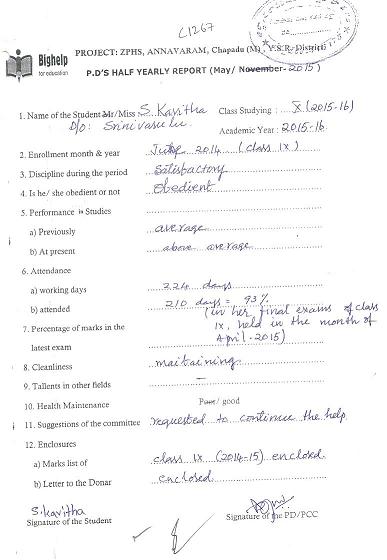 C1267
Bighelp
for education
PROJECT: ZPHS, ANNAVARAM, Chapadu (M), Y.S.R. District
P.D'S HALF YEARLY REPORT (May/ November-2015)
1. Name of the Student Mr/Miss S. Kavitha Class Studying : X (2015-16)
D/o: Srinivasulu Academic Year : 2015-16
2. Enrollment month & year June 2014 (class IX)
3. Discipline during the period satisfactory
4. Is he/ she obedient or not obedient
5. Performance is Studies
a) Previously average
b) At present above average
6. Attendance
a) working days 224 days
b) attended 210 days = 93%
7. Percentage of marks in the latest exam (in her final exams of class IX, held in the month of April-2015)
8. Cleanliness maitaining
9. Tallents in other fields –
10. Health Maintenance Poor/ good
11. Suggestions of the committee requested to continue the help
12. Enclosures
a) Marks list of class IX (2014-15) enclosed
b) Letter to the Donar enclosed
S. Kavitha
Signature of the Student Signature of the PD/PCC